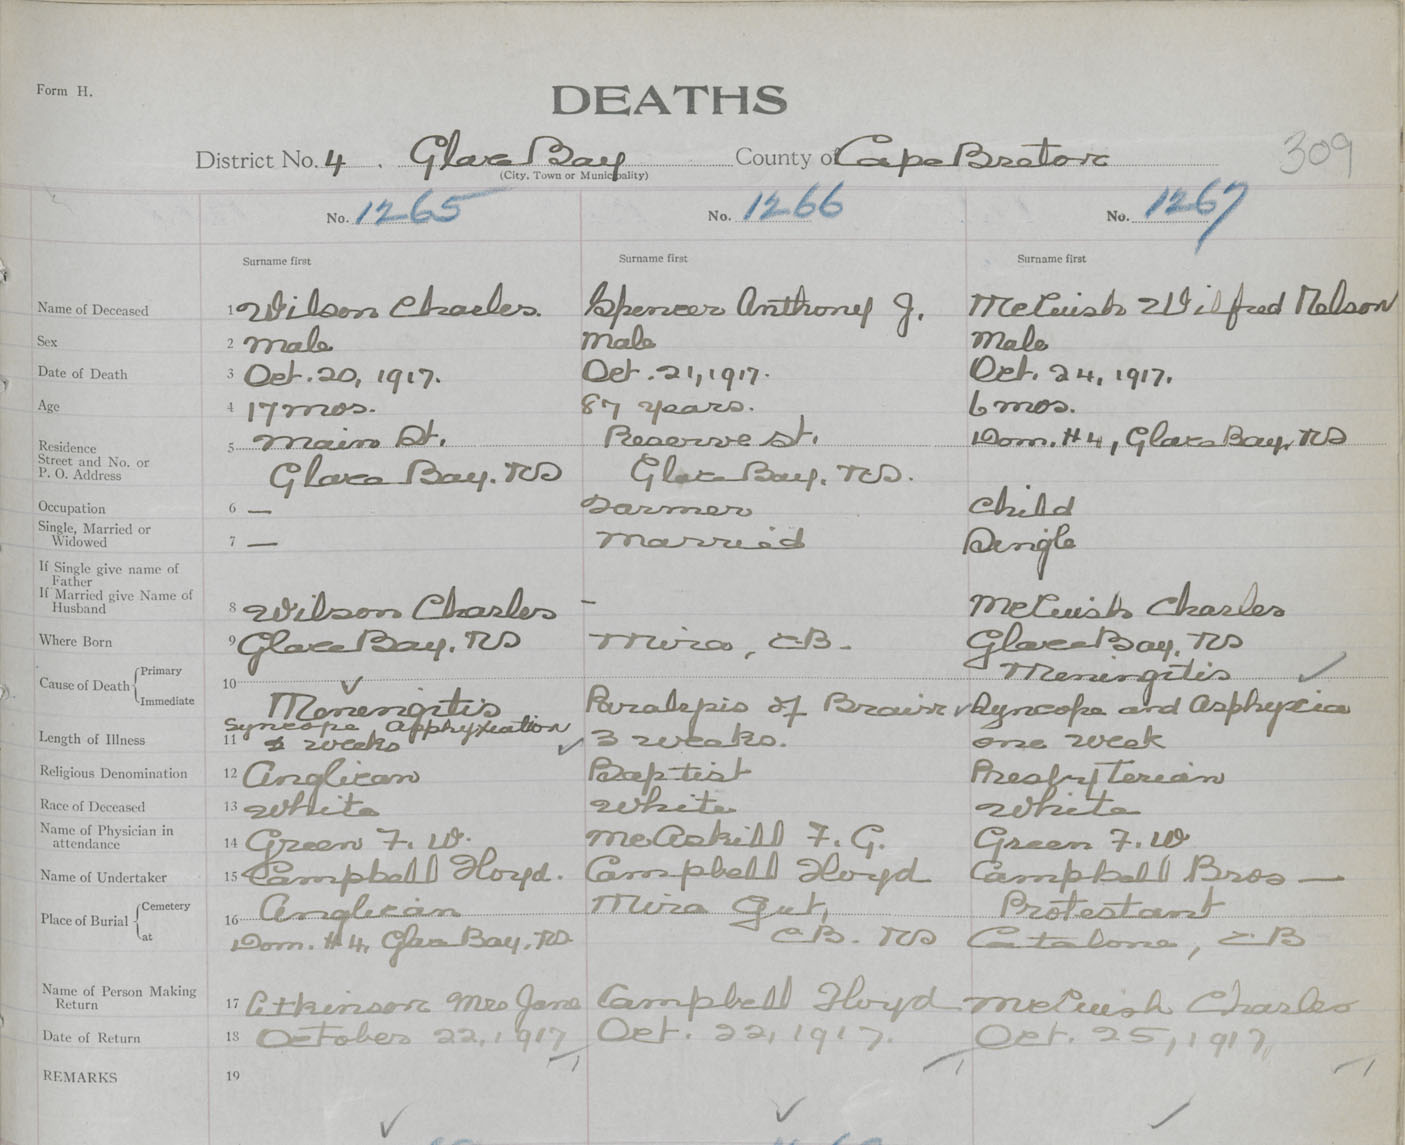 Form H.
DEATHS
309
District No. 4. Glace Bay County of Cape Breton
(City, Town or Municipality)
No. 1265 No. 1266 No. 1267
Surname first Surname first Surname first
Name of Deceased 1 Wilson Charles. Spencer Anthony J. McCuish Wilfred Nelson
Sex 2 Male Male Male
Date of Death 3 Oct. 20, 1917. Oct. 21, 1917. Oct. 24, 1917.
Age 4 17 mos. 87 years. 6 mos.
Residence Street and No. or P. O. Address 5 Main St. Reserve St. Dom. #4, Glace Bay, NS
Glace Bay. NS Glace Bay. NS.
Occupation 6 — Farmer Child
Single, Married or Widowed 7 — Married Single
If Single give name of Father
If Married give Name of Husband 8 Wilson Charles - McCuish Charles
Where Born 9 Glace Bay. NS Mira, CB. Glace Bay, NS
Cause of Death Primary 10 ✓ Meningitis ✓
Immediate Meningitis Paralepis of Brain ✓ Syncope and Asphyxia
Syncope Apphyxiation
Length of Illness 11 weeks ✓ 3 weeks. one week
Religious Denomination 12 Anglican Baptist Presbyterian
Race of Deceased 13 White White White
Name of Physician in attendance 14 Green F. W. McAskill F. G. Green F. W
Name of Undertaker 15 Campbell Floyd. Campbell Floyd Campbell Bros —
Place of Burial Cemetery 16 Anglican Mira Gut, Protestant
at Dom. #4, Glace Bay. NS. CB. NS Catalone, CB
Name of Person Making Return 17 Atkinson Mrs Jane Campbell Floyd McCuish Charles
Date of Return 18 October 22, 1917 Oct. 22, 1917. Oct. 25, 1917,
REMARKS 19